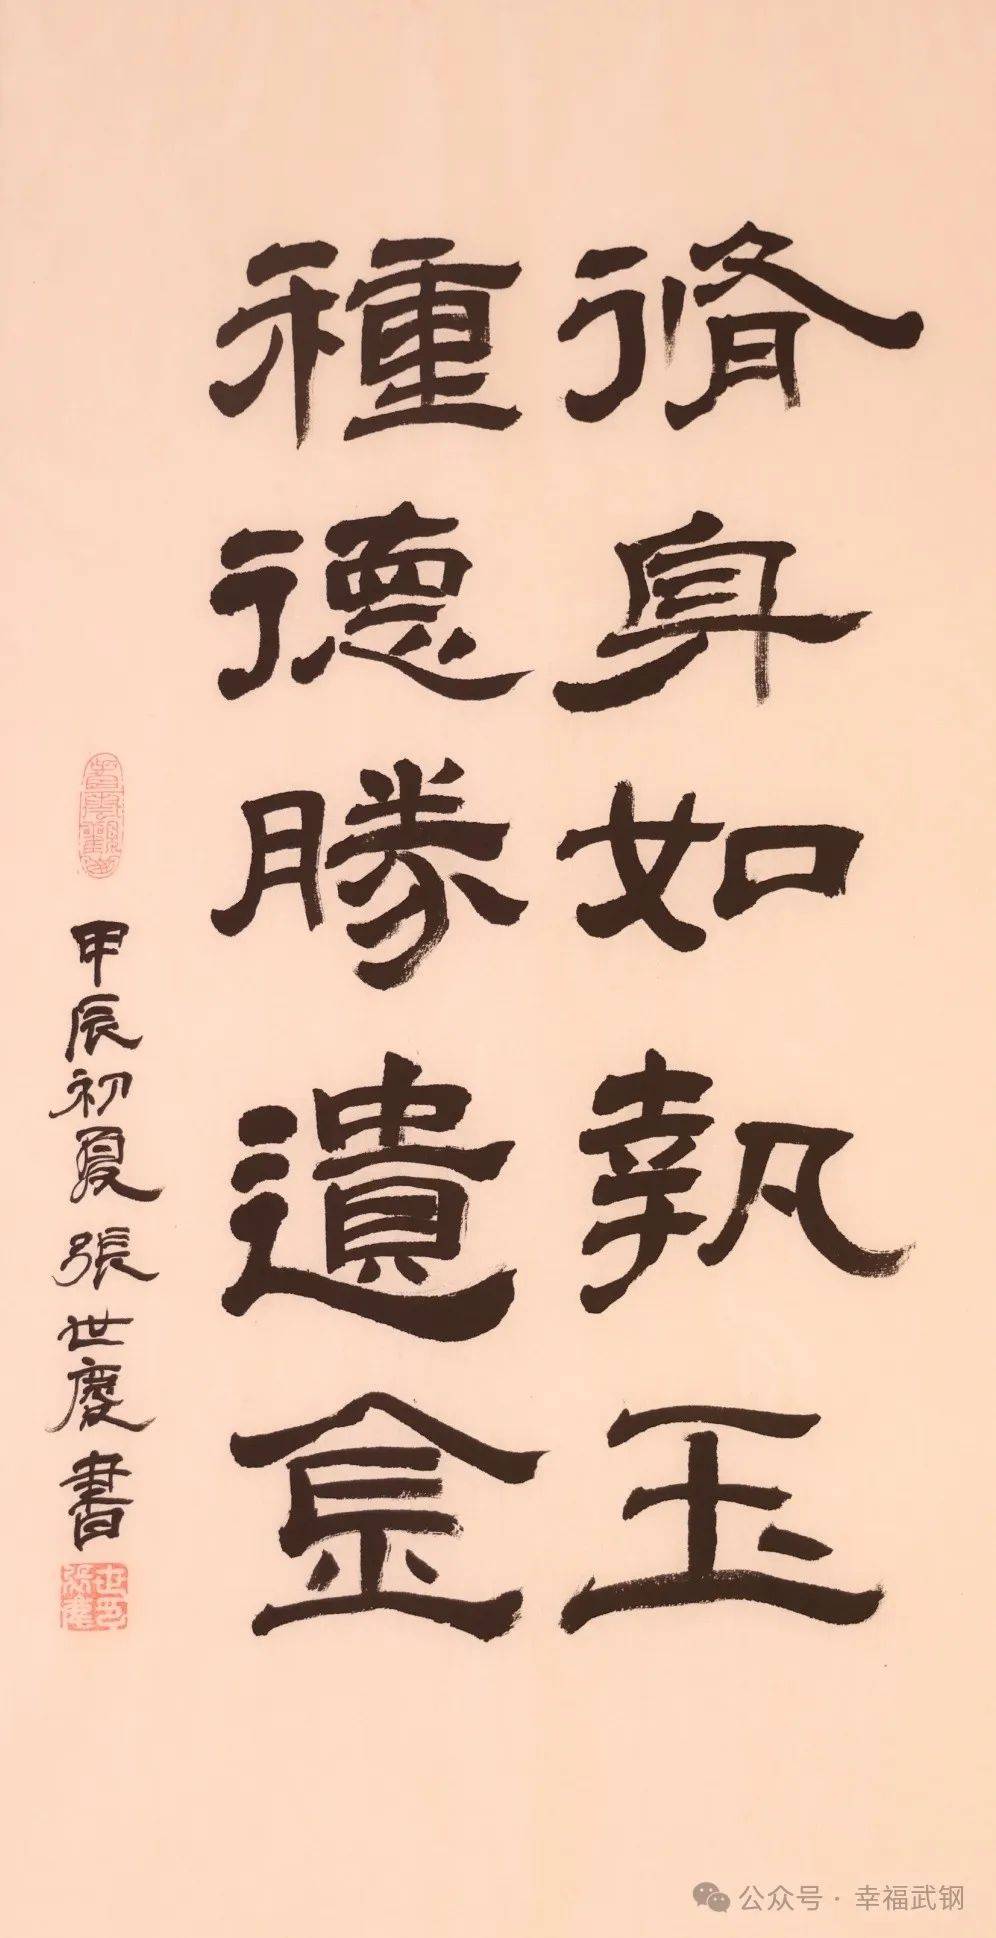 脩身如執玉
種德勝遺金
甲辰初夏張世慶書
公众号·幸福武钢